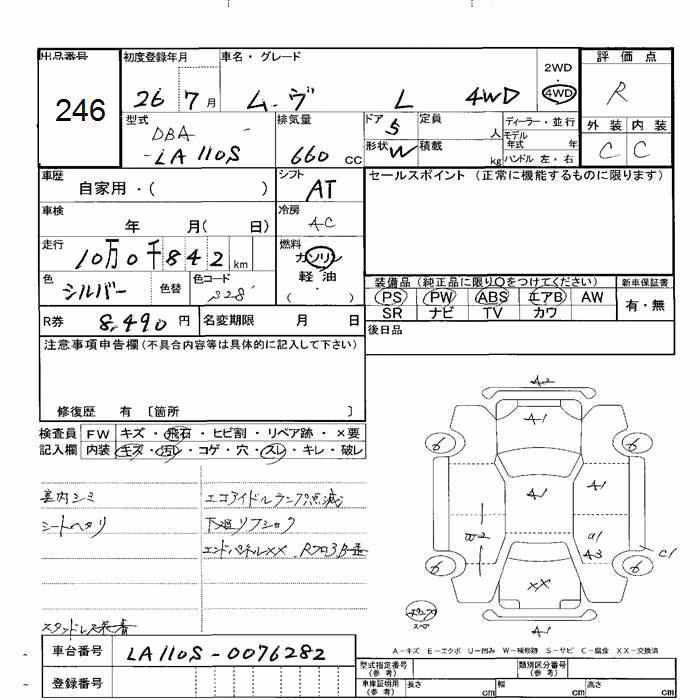 出品番号 初度登録年月 車名・グレード 評価点
246
26 7月 ムーヴ L 4WD 2WD・4WD R
型式 排気量 ドア 定員 ディーラー・並行 外装 内装
DBA- 5 人 モデル年式 年
-LA110S 660 CC 形状 W 積載 kg ハンドル 左・右 C C
車歴 シフト セールスポイント (正常に機能するものに限ります)
自家用・( ) AT
車検 冷房
年 月( 日) AC
走行 燃料
10万0千842km ガソリン・軽油
色 色コード ( )
シルバー 色替 S28 装備品 (純正品に限り○をつけてください) 新車保証書
PS PW ABS エアB AW 有・無
SR ナビ TV カワ
R券 8,490円 名変期限 月 日 後日品
注意事項申告欄 (不具合内容等は具体的に記入して下さい)
修復歴 有 〔箇所 〕
検査員 FW キズ・飛石・ヒビ割・リペア跡・×要
記入欄 内装 キズ・汚レ・コゲ・穴・スレ・キレ・破レ
A2
A1
6 6
A1 A1
A1
A3 C1
6 6
XX
A1
室内シミ エコアイドルランプ点滅
シートヘタリ 下廻リフショク
エンドパネルXX
スタッドレス装着
A-キズ E-エクボ U-凹み W-補修跡 S-サビ C-腐食 XX-交換済
車台番号 LA110S-0076282
登録番号
型式指定番号 (参考) 類別区分番号 (参考)
車庫証明用 (参考) 長さ cm 幅 cm 高さ cm